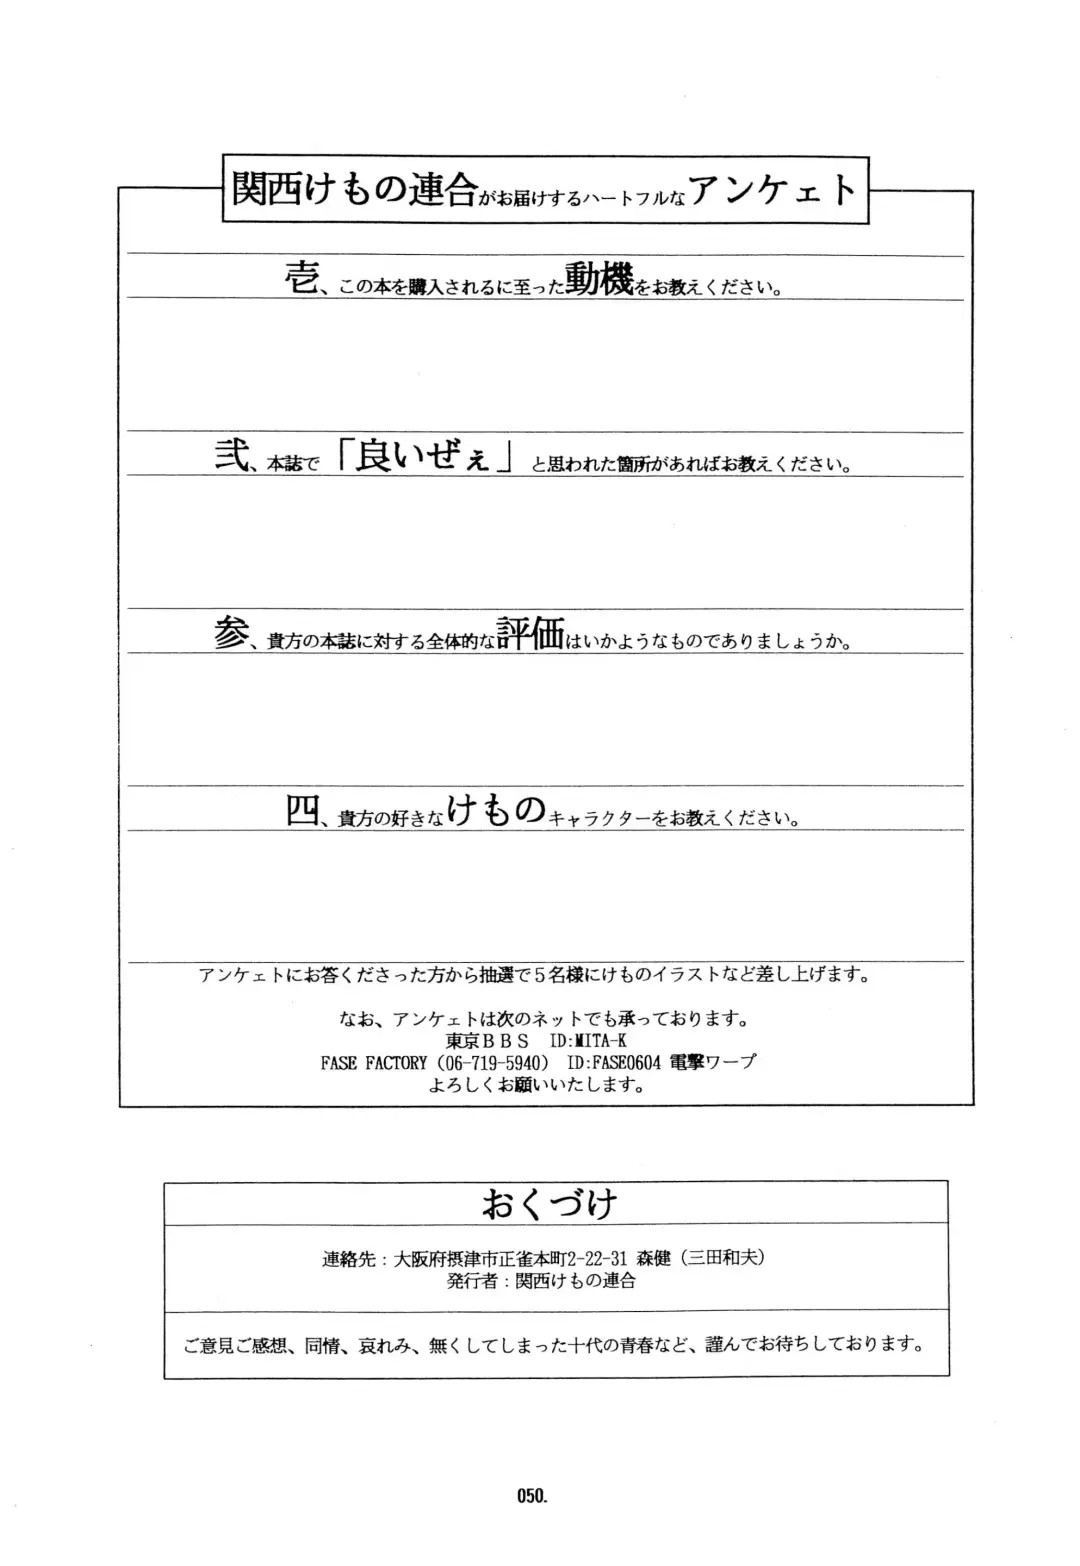 関西けもの連合がお届けするハートフルなアンケェト
壱、この本を購入されるに至った動機をお教えください。
弐、本誌で「良いぜぇ」と思われた箇所があればお教えください。
参、貴方の本誌に対する全体的な評価はいかようなものでありましょうか。
四、貴方の好きなけものキャラクターをお教えください。
アンケェトにお答くださった方から抽選で5名様にけものイラストなど差し上げます。
なお、アンケェトは次のネットでも承っております。
東京BBS ID:MITA-K
FASE FACTORY (06-719-5940) ID:FASE0604 電撃ワープ
よろしくお願いいたします。
おくづけ
連絡先：大阪府摂津市正雀本町2-22-31 森健（三田和夫）
発行者：関西けもの連合
ご意見ご感想、同情、哀れみ、無くしてしまった十代の青春など、謹んでお待ちしております。
050.